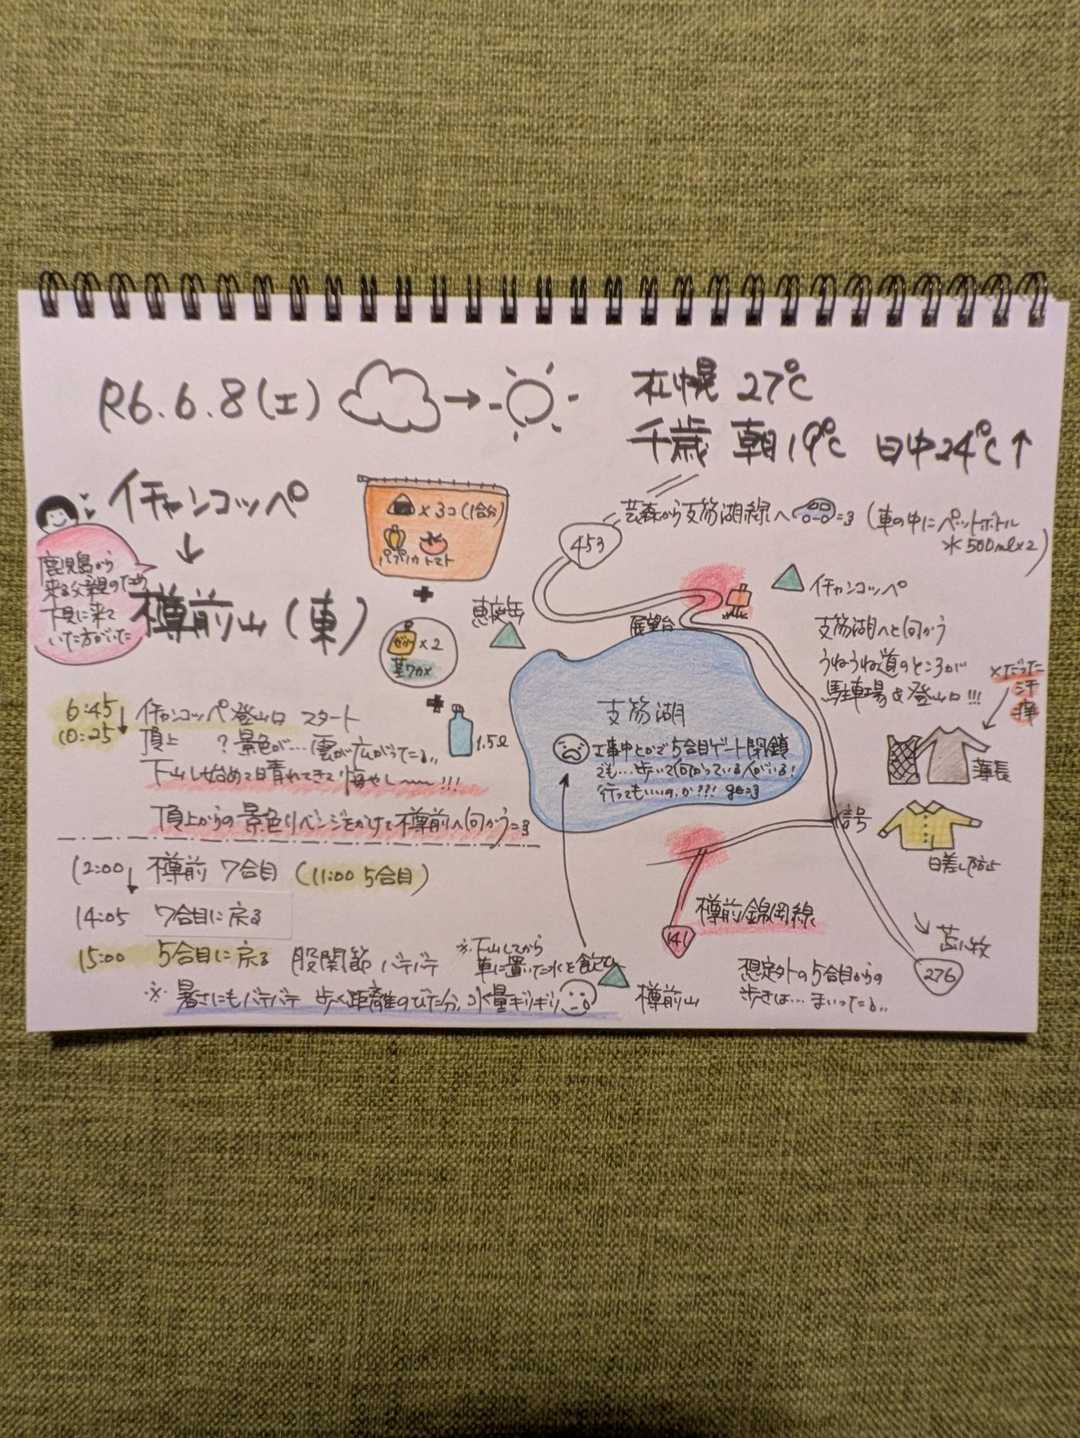 R6.6.8(土)
札幌 27℃
千歳 朝19℃ 日中24℃↑
イチャンコッペ
↓
樽前山(東)
鹿児島から
来る父親のため
下見に来て
いた方がいた
×3コ(1合分)
パプリカ トマト
+
ゼリー ×2
茎ワカメ
+
1.5ℓ
芸森から支笏湖線へ
(車の中にペットボトル
水 500ml×2)
453
恵庭岳
展望台
イチャンコッペ
支笏湖へと向かう
うねうね道のところが
駐車場&登山口!!!
支笏湖
工事中とかで5合目ゲート閉鎖
でも…歩いて向かっている人がいる!
行ってもいいのか??? go=3
×だった
汗
薄長
日差し防止
信号
樽前錦岡線
141
苫小牧
276
想定外の5合目からの
歩きは… まいったな..
樽前山
6:45 イチャンコッペ登山口 スタート
10:25 頂上 ?景色が…雲が広がってる..
下山し始めて晴れてきて悔やし〜!!!
頂上からの景色リベンジをかけて樽前へ向かう=3
12:00 樽前 7合目 (11:00 5合目)
14:05 7合目に戻る
15:00 5合目に戻る 股関節 バテバテ
※下山してから
車に置いた水を飲む
※ 暑さにもバテバテ 歩く距離のびた分、水量ギリギリ